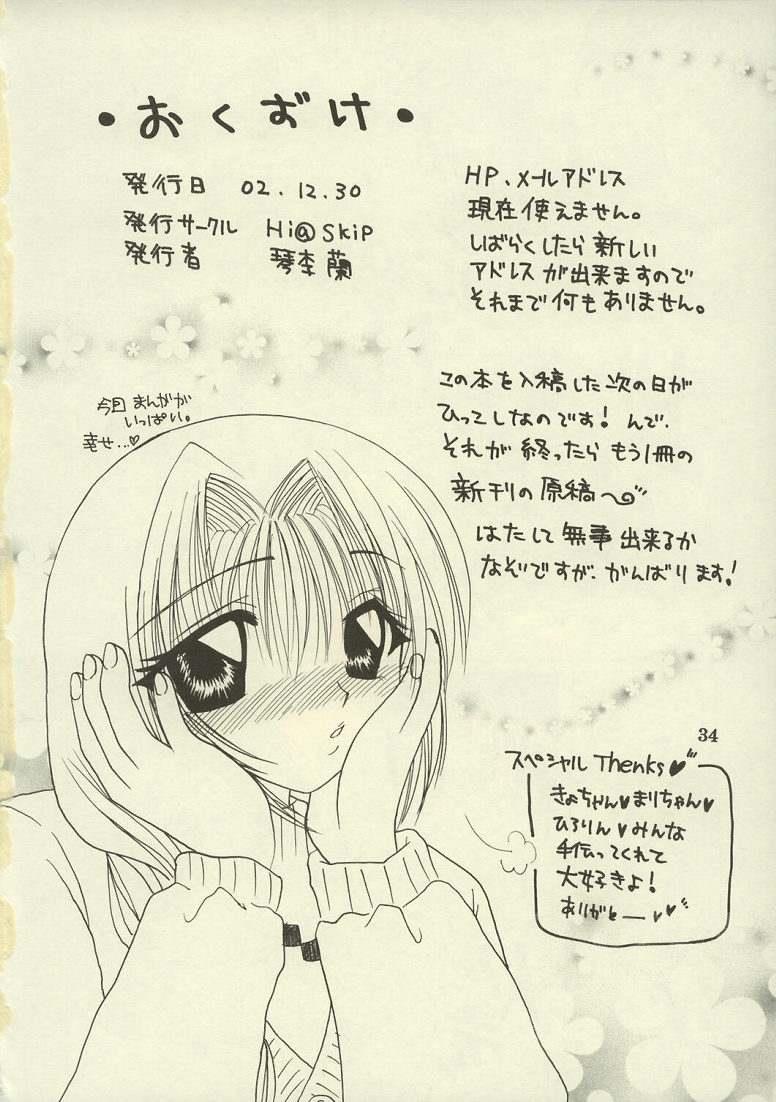 • おくずけ •
発行日 02.12.30
発行サークル Hi@SkiP
発行者 琴李蘭
HP、メールアドレス
現在使えません。
しばらくしたら新しい
アドレスが出来ますので
それまで何もありません。
今回まんがが
いっぱい。
幸せ…♡
この本を入稿した次の日が
ひっこしなのです！んで、
それが終ったらもう1冊の
新刊の原稿〜
はたして無事出来るか
なぞですが、がんばります！
34
スペシャル Thenks♥
きょちゃん♥まりちゃん♥
ひろりん♥みんな
手伝ってくれて
大好きよ！
ありがとー